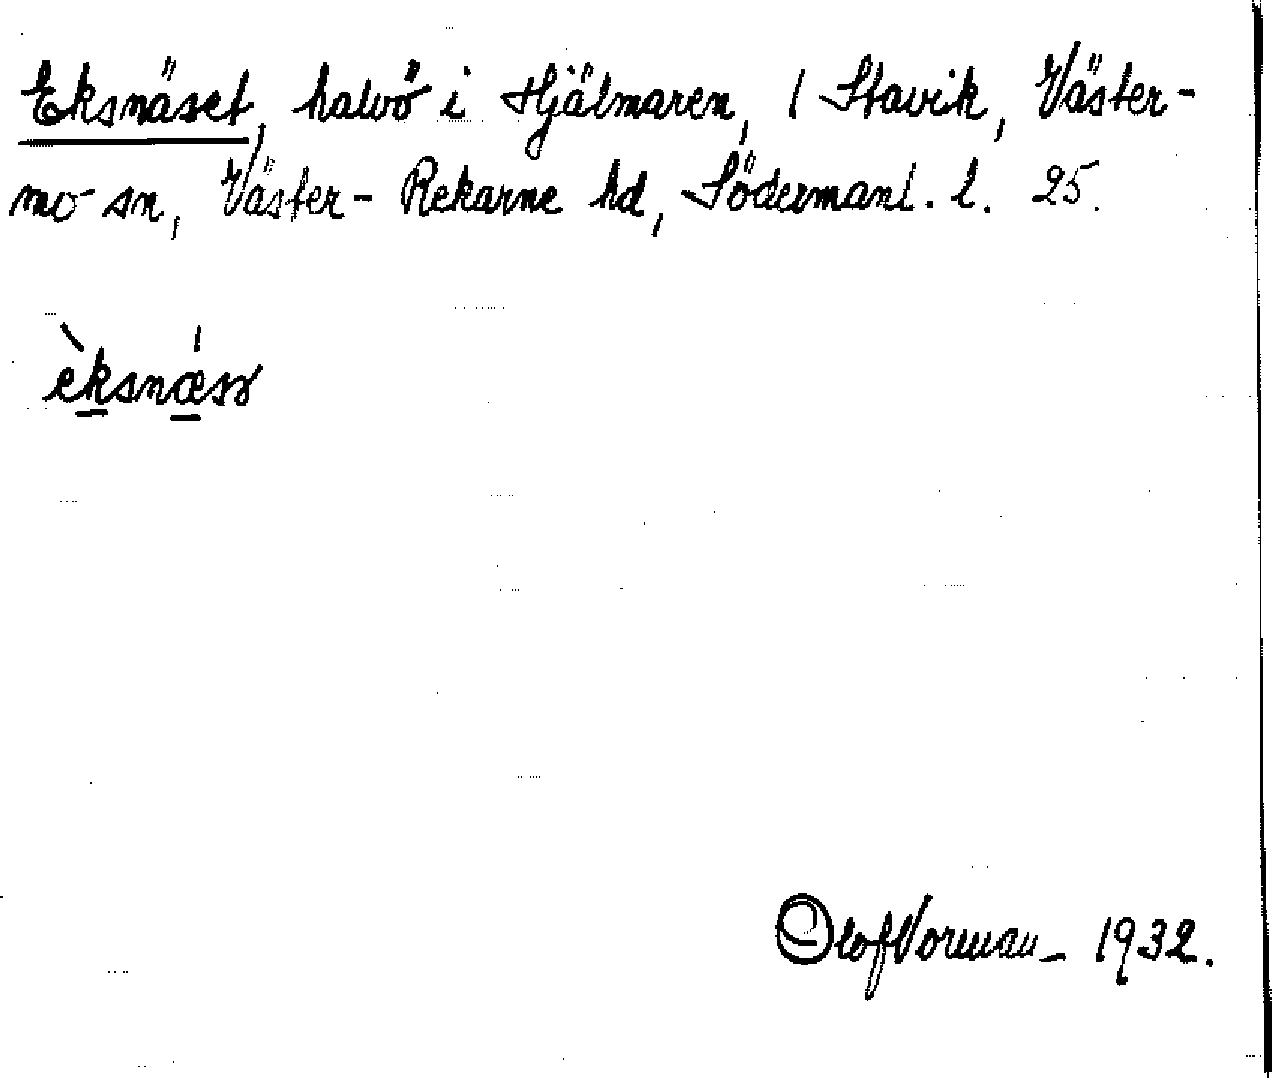 Eksnäset, halvö i Hjälmaren, / Stavik, Väster-
mo sn, Väster-Rekarne hd, Södermanl. l. 25.
èksnǽsə
Olof Norman 1932.